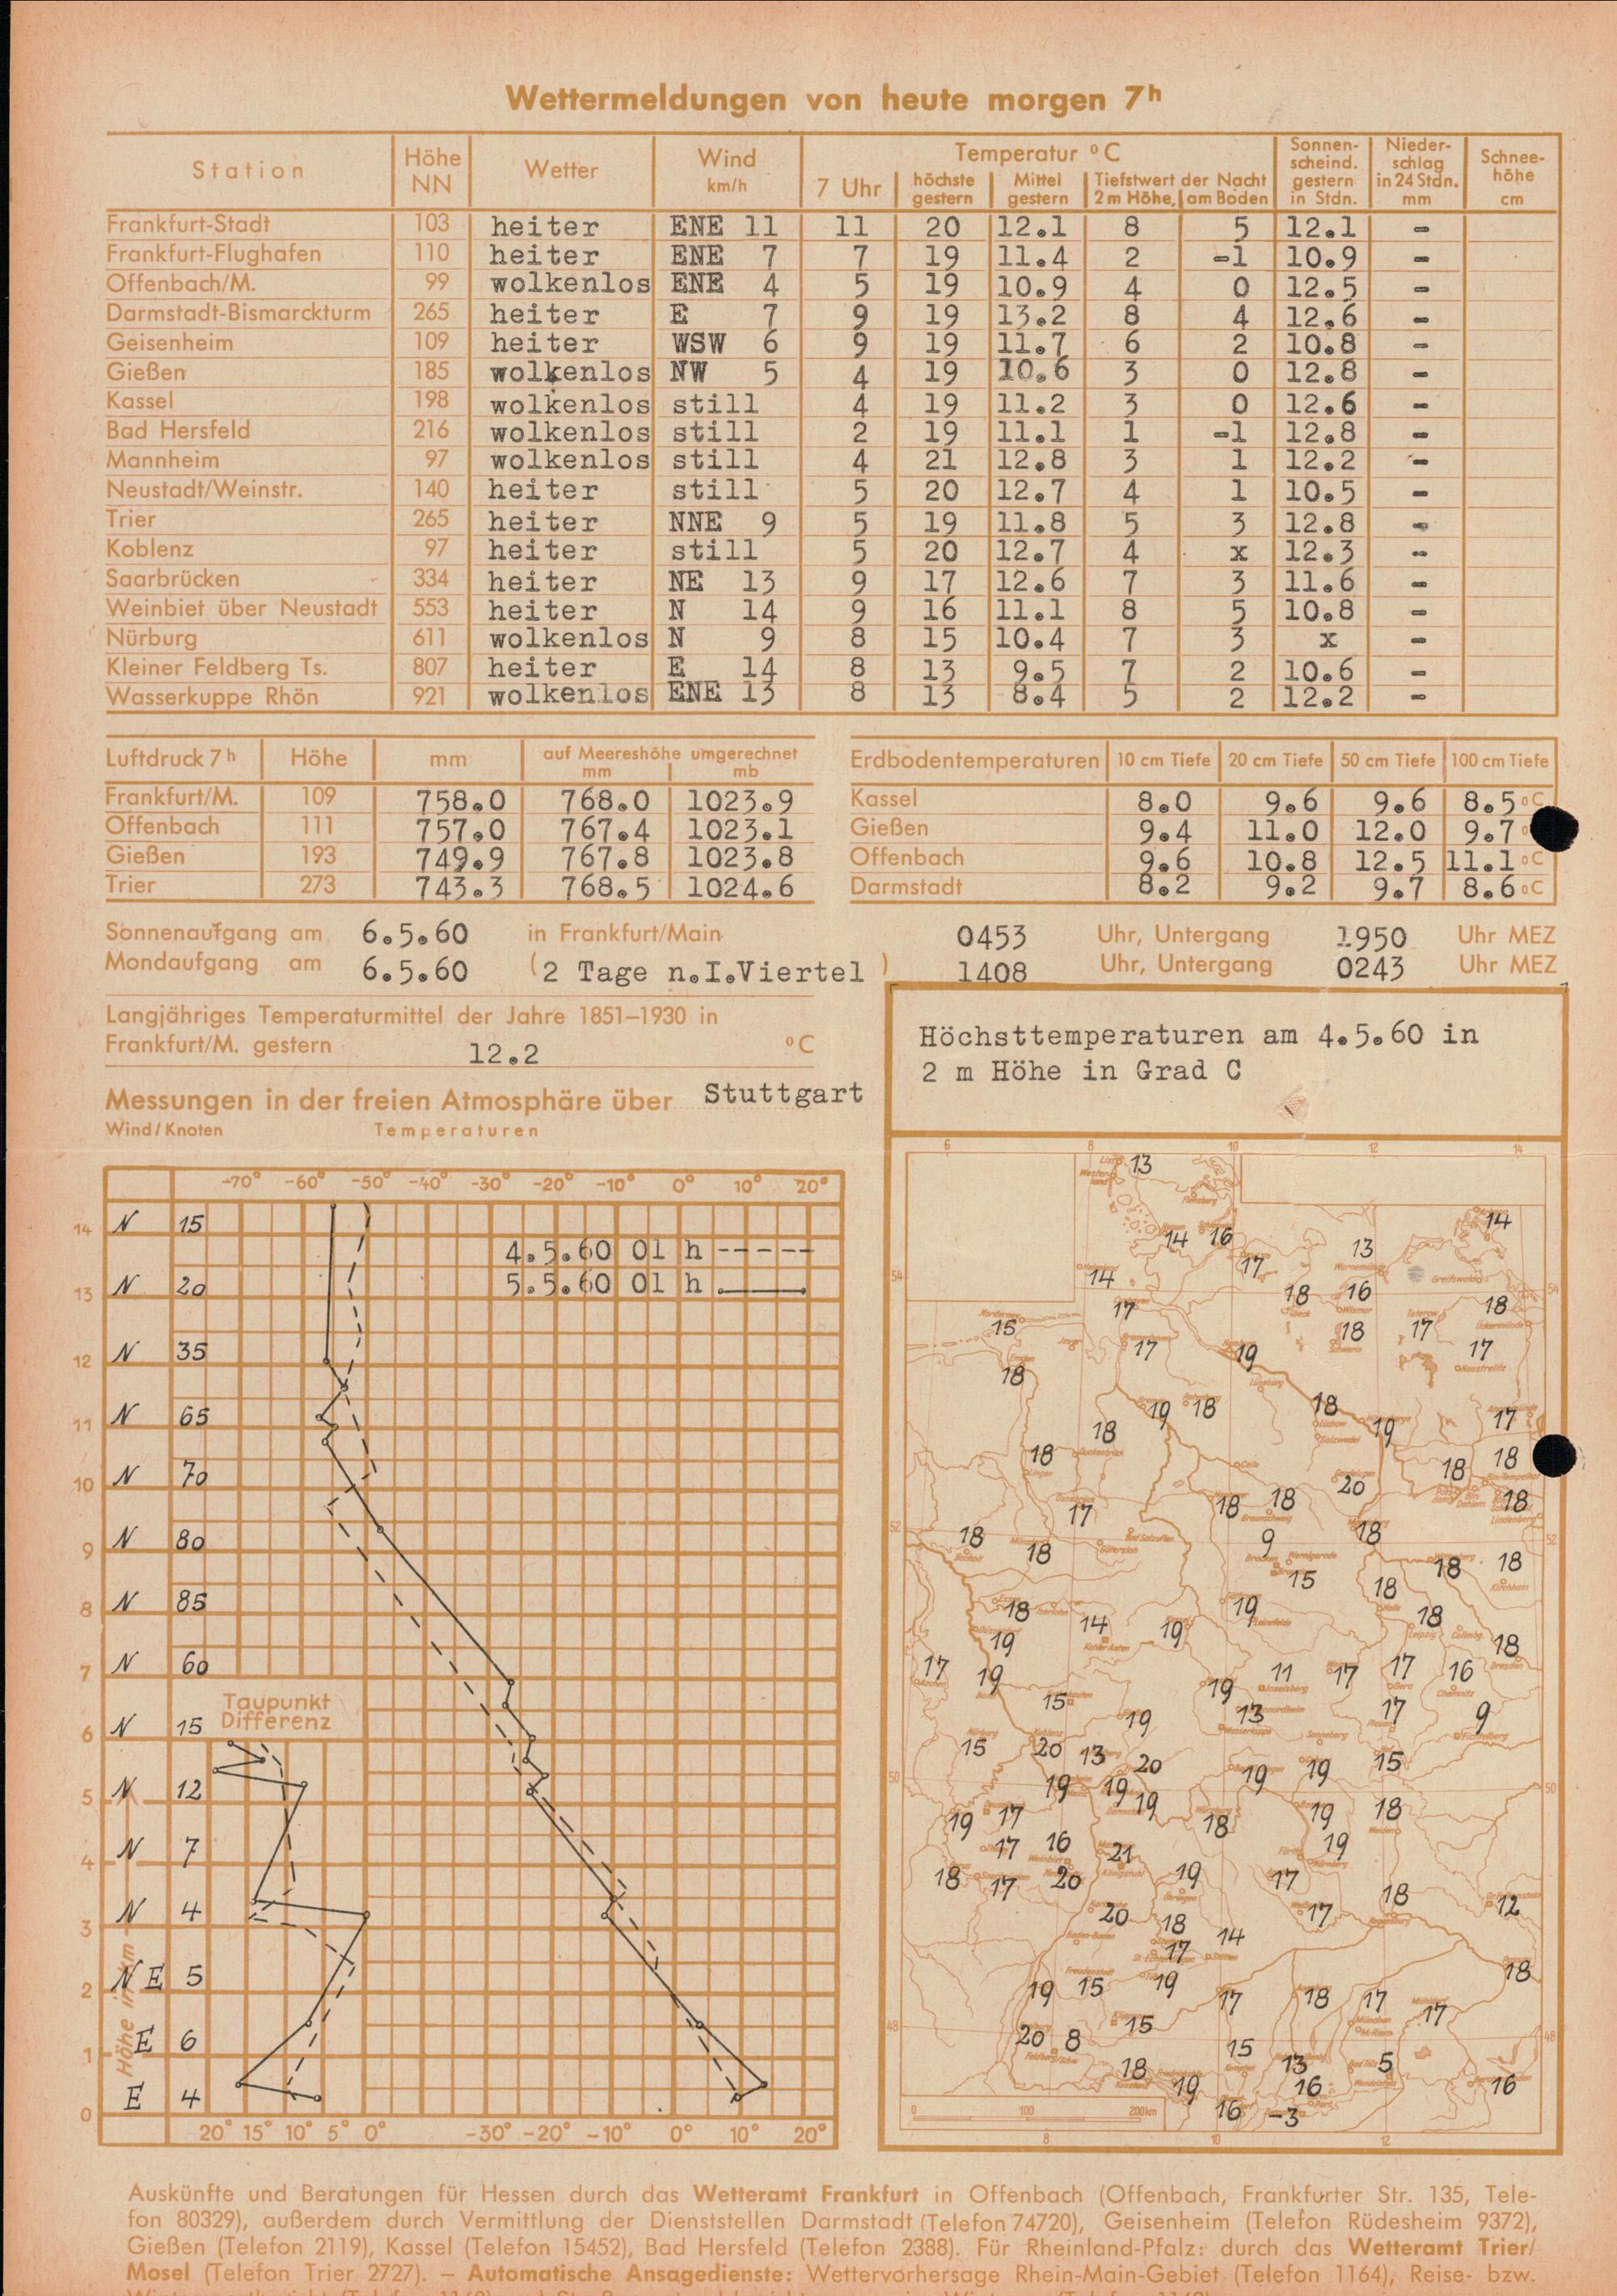 Wettermeldungen von heute morgen 7h
Station Höhe NN Wetter Wind km/h Temperatur °C 7 Uhr höchste gestern Mittel gestern Tiefstwert der Nacht 2 m Höhe, am Boden Sonnenscheind. gestern in Stdn. Nieder-schlag in 24 Stdn. mm Schnee-höhe cm
Frankfurt-Stadt 103 heiter ENE 11 11 20 12.1 8 5 12.1 -
Frankfurt-Flughafen 110 heiter ENE 7 7 19 11.4 2 -1 10.9 -
Offenbach/M. 99 wolkenlos ENE 4 5 19 10.9 4 0 12.5 -
Darmstadt-Bismarckturm 265 heiter E 7 9 19 13.2 8 4 12.6 -
Geisenheim 109 heiter WSW 6 9 19 11.7 6 2 10.8 -
Gießen 185 wolkenlos NW 5 4 19 10.6 3 0 12.8 -
Kassel 198 wolkenlos still 4 19 11.2 3 0 12.6 -
Bad Hersfeld 216 wolkenlos still 2 19 11.1 1 -1 12.8 -
Mannheim 97 wolkenlos still 4 21 12.8 3 1 12.2 -
Neustadt/Weinstr. 140 heiter still 5 20 12.7 4 1 10.5 -
Trier 265 heiter NNE 9 5 19 11.8 5 3 12.8 -
Koblenz 97 heiter still 5 20 12.7 4 x 12.3 -
Saarbrücken 334 heiter NE 13 9 17 12.6 7 3 11.6 -
Weinbiet über Neustadt 553 heiter N 14 9 16 11.1 8 5 10.8 -
Nürburg 611 wolkenlos N 9 8 15 10.4 7 3 x -
Kleiner Feldberg Ts. 807 heiter E 14 8 13 9.5 7 2 10.6 -
Wasserkuppe Rhön 921 wolkenlos ENE 13 8 13 8.4 5 2 12.2 -
Luftdruck 7h Höhe mm auf Meereshöhe umgerechnet mm mb
Frankfurt/M. 109 758.0 768.0 1023.9
Offenbach 111 757.0 767.4 1023.1
Gießen 193 749.9 767.8 1023.8
Trier 273 743.3 768.5 1024.6
Erdbodentemperaturen 10 cm Tiefe 20 cm Tiefe 50 cm Tiefe 100 cm Tiefe
Kassel 8.0 9.6 9.6 8.5 °C
Gießen 9.4 11.0 12.0 9.7
Offenbach 9.6 10.8 12.5 11.1 °C
Darmstadt 8.2 9.2 9.7 8.6 °C
Sonnenaufgang am 6.5.60 in Frankfurt/Main 0453 Uhr, Untergang 1950 Uhr MEZ
Mondaufgang am 6.5.60 (2 Tage n.I.Viertel) 1408 Uhr, Untergang 0243 Uhr MEZ
Langjähriges Temperaturmittel der Jahre 1851–1930 in
Frankfurt/M. gestern 12.2 °C
Messungen in der freien Atmosphäre über Stuttgart
Wind/Knoten Temperaturen
-70° -60° -50° -40° -30° -20° -10° 0° 10° 20°
14 N 15
4.5.60 01 h -----
13 N 20 5.5.60 01 h
12 N 35
11 N 65
10 N 70
9 N 80
8 N 85
7 N 60
Taupunkt
Differenz
6 N 15
5 N 12
4 N 7
3 N 4
2 NE 5
1 E 6
0 E 4
Höhe in km
20° 15° 10° 5° 0° -30° -20° -10° 0° 10° 20°
Höchsttemperaturen am 4.5.60 in
2 m Höhe in Grad C
6 8 10 12 14
13
14 16 14
14 17 13
17 18 16 18
15 17 18 17
17 19 17
18
19 18 18 19 17
18 18 18 18
20
17 18 18 18
18 18 9 18 18 18
15 18
18 14 19 19 18
19 18
17 19 19 11 17 17 16
15 19 13 17 9
15 20 13 20 15
19 19 19 19 19
19 17 18 19 18
17 16 21 19
18 17 20 19 17 18 12
20 18 14 17
17
19 15 19 17 18 17 17 18
20 8 15 15
18 19 13 5 16
16 16 -3
0 100 200km
8 10 12
Auskünfte und Beratungen für Hessen durch das Wetteramt Frankfurt in Offenbach (Offenbach, Frankfurter Str. 135, Tele-
fon 80329), außerdem durch Vermittlung der Dienststellen Darmstadt (Telefon 74720), Geisenheim (Telefon Rüdesheim 9372),
Gießen (Telefon 2119), Kassel (Telefon 15452), Bad Hersfeld (Telefon 2388). Für Rheinland-Pfalz: durch das Wetteramt Trier/
Mosel (Telefon Trier 2727). — Automatische Ansagedienste: Wettervorhersage Rhein-Main-Gebiet (Telefon 1164), Reise- bzw.